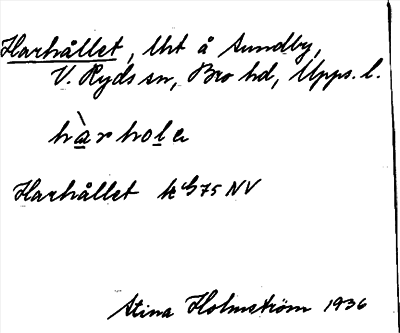 Harhållet, Utt å Sundby,
V. Ryds sn, Bro hd, Upps. l.
hàrhole
Harhållet k 675 NV
Stina Holmström 1936